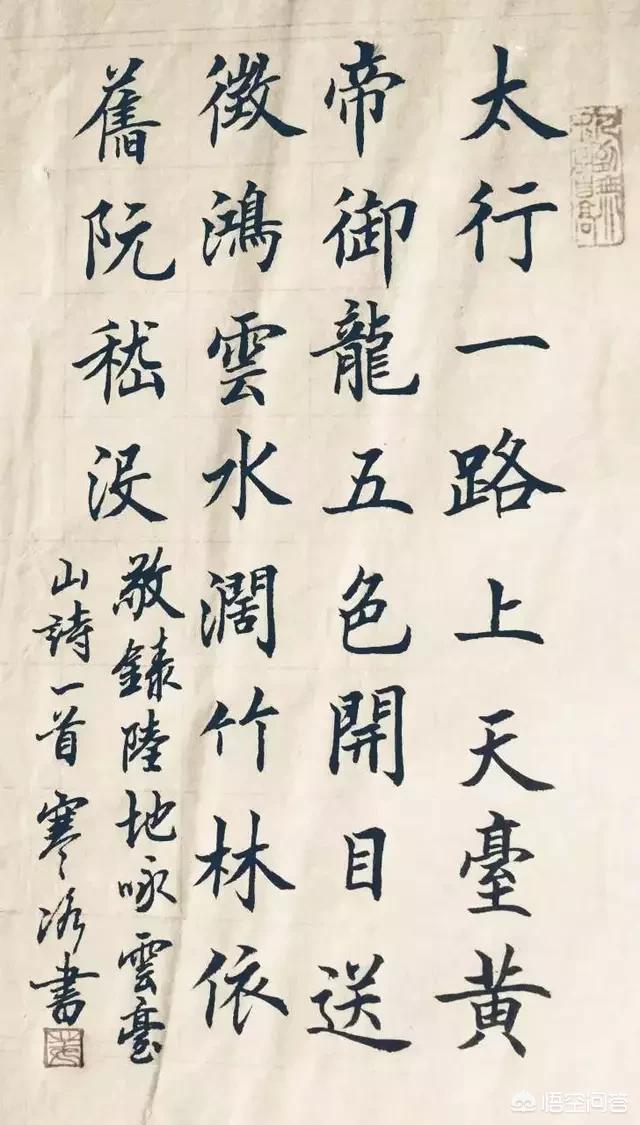 太行一路上天臺黄
帝御龍五色開目送
徵鴻雲水濶竹林依
舊阮嵇没
敬錄陸地咏雲臺
山詩一首 寒 書
悟空问答